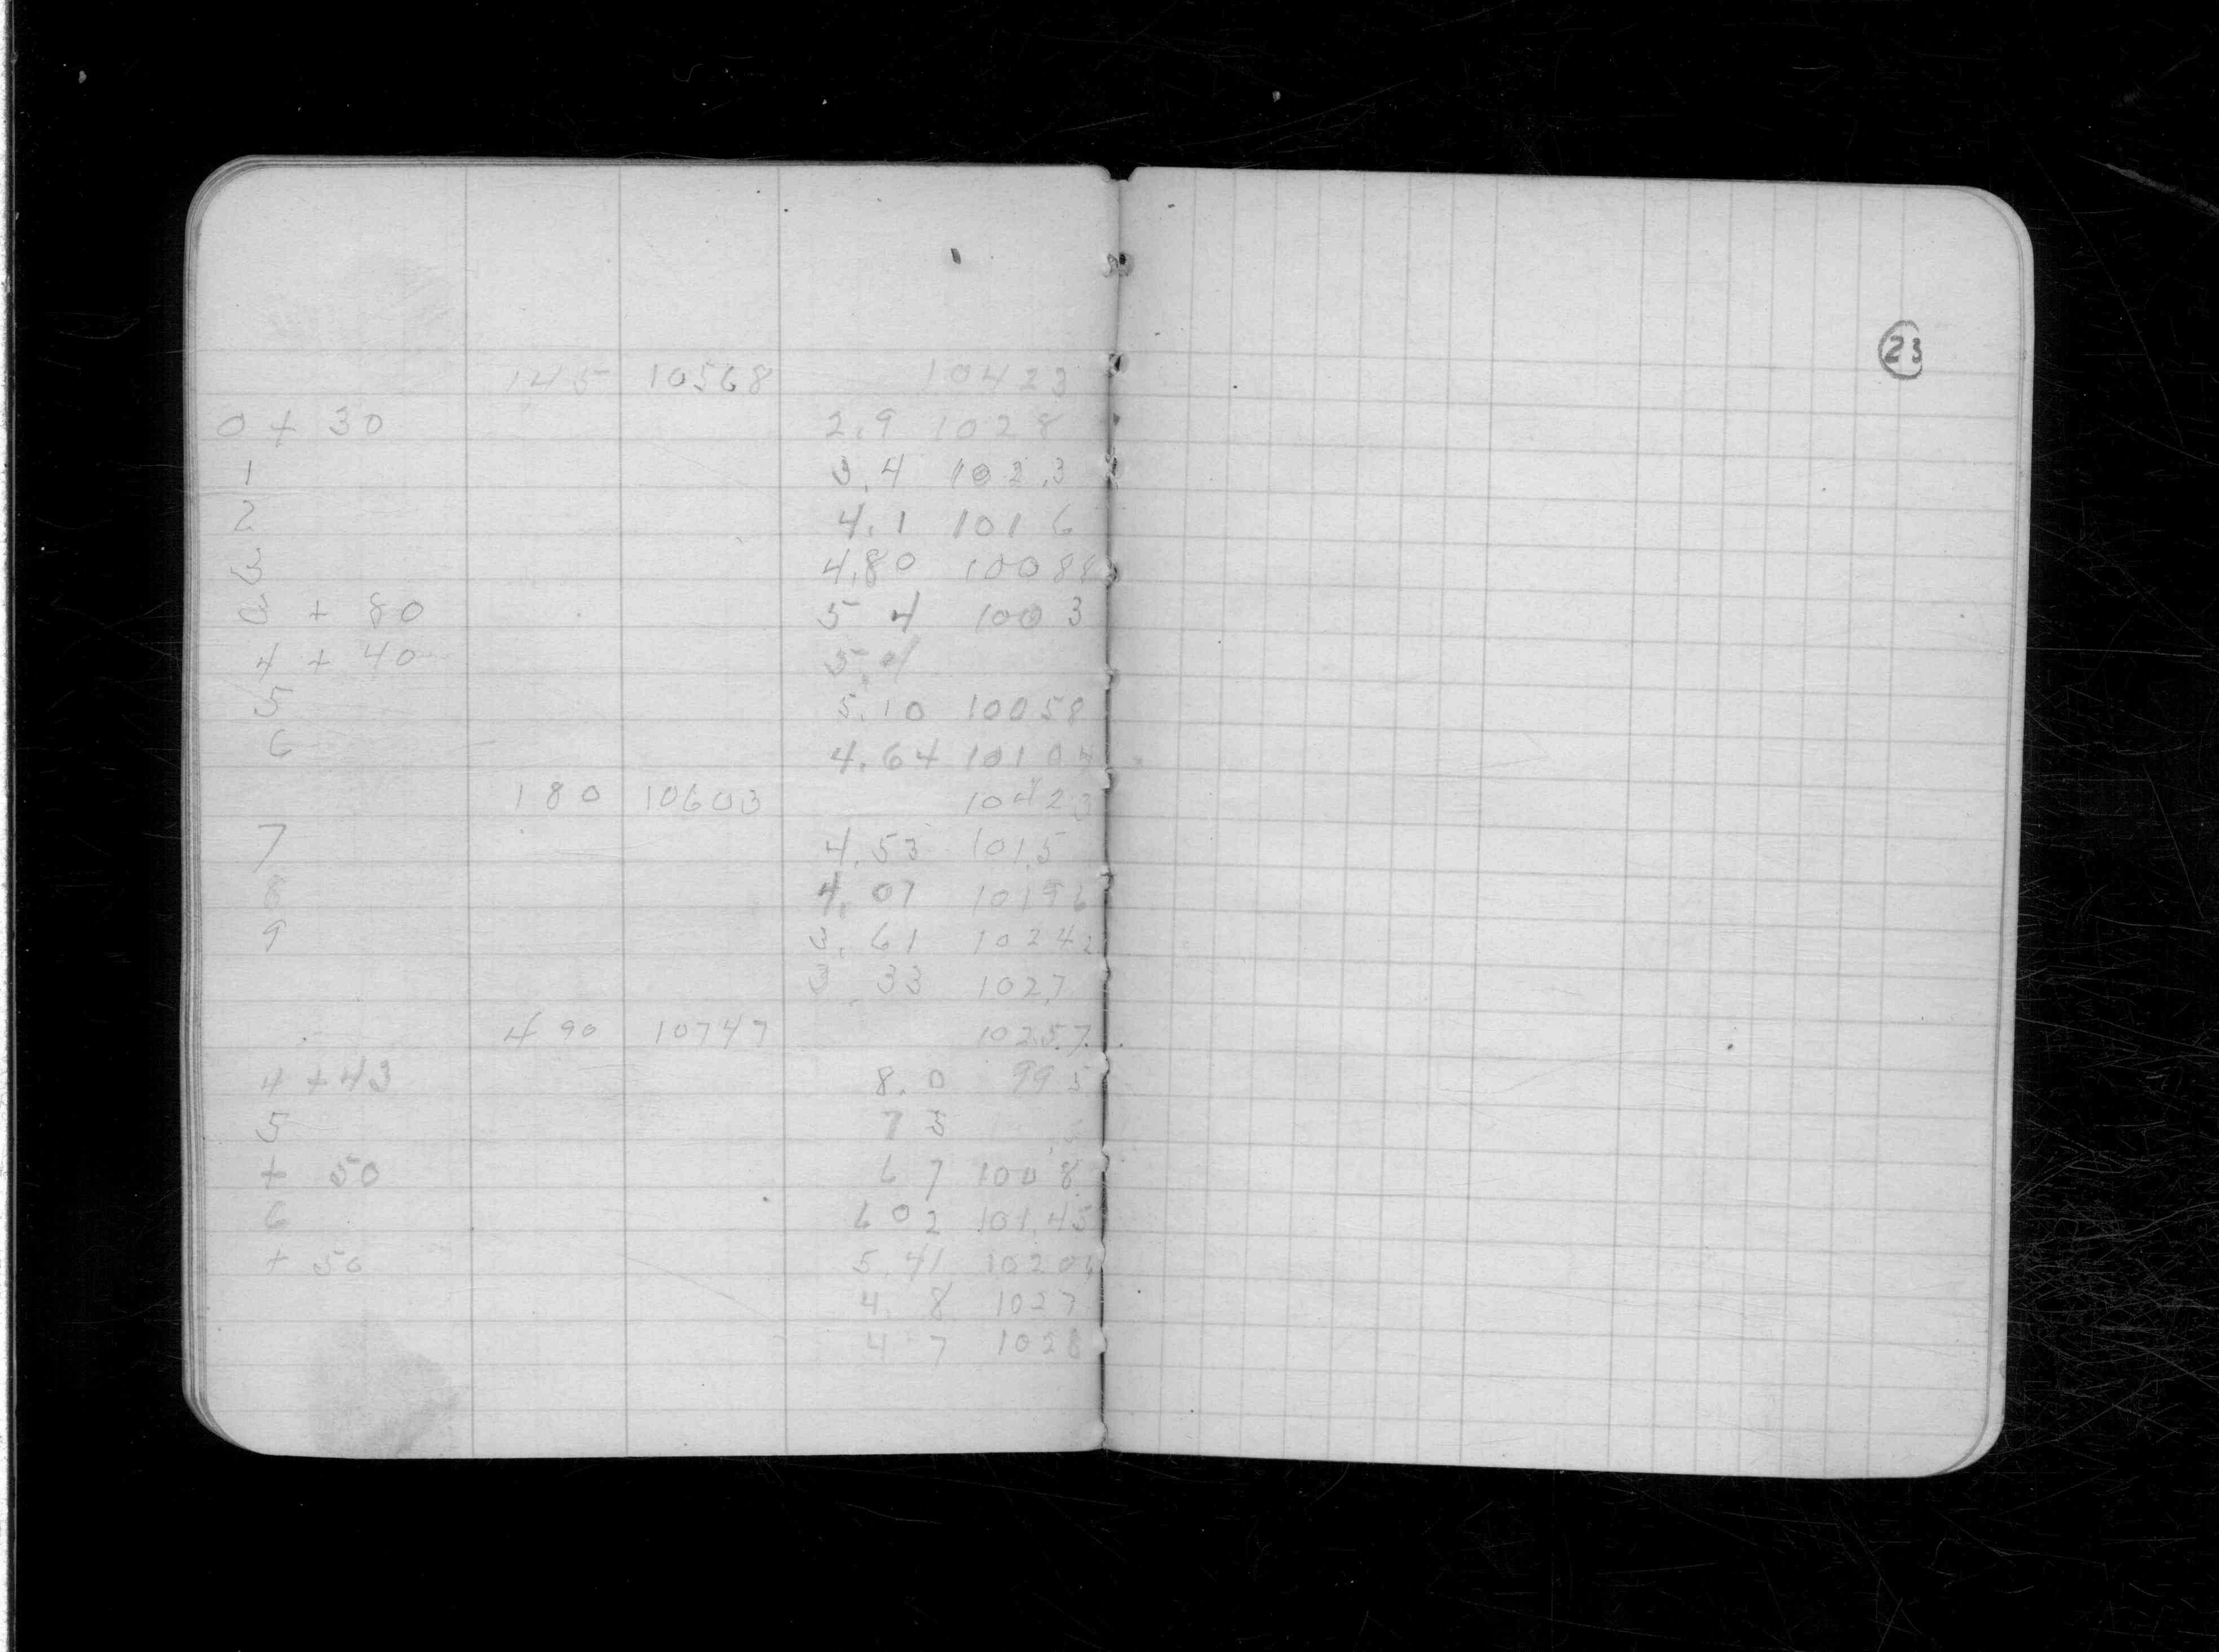 145 10568 10423
0 + 30 2.9 1028
1 3.4 102.3
2 4.1 101 6
3 4.80 100 88
3 + 80 5 4 100 3
4 + 40 5.4
5 5.10 100 58
6 4.64 101 04
180 10603 10423
7 4.53 101.5
8 4.07 101 96
9 3.61 102 42
3.33 102.7
490 10747 102.57
4 + 43 8.0 99 5
5 7 5
+ 50 6 7 100 8
6 6 02 101.45
+ 50 5.41 102 06
4. 8 102 7
4 7 102 8
23